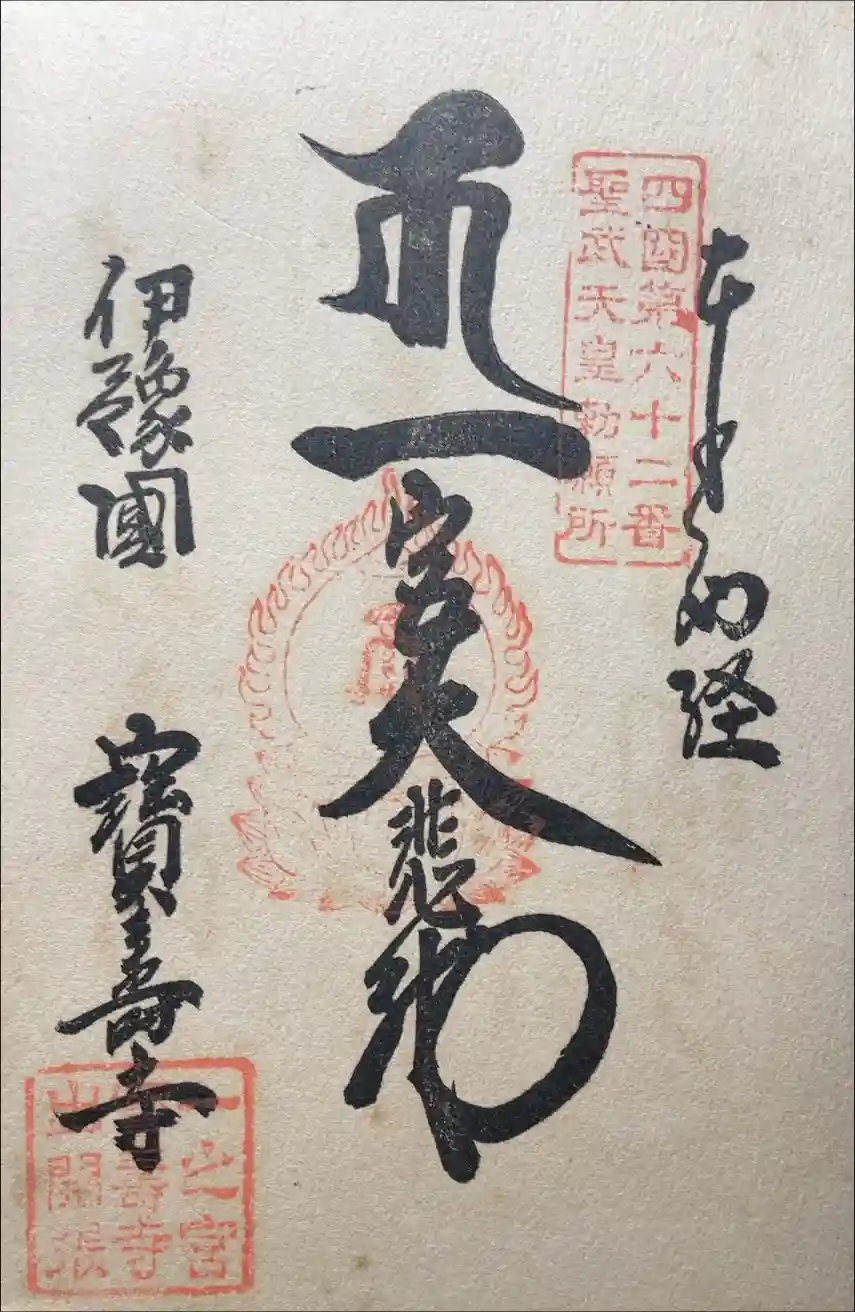 奉納経
四國第六十二番
聖武天皇勅願所
一宮大悲殿
伊豫國
寶壽寺
一之宮
寶壽寺